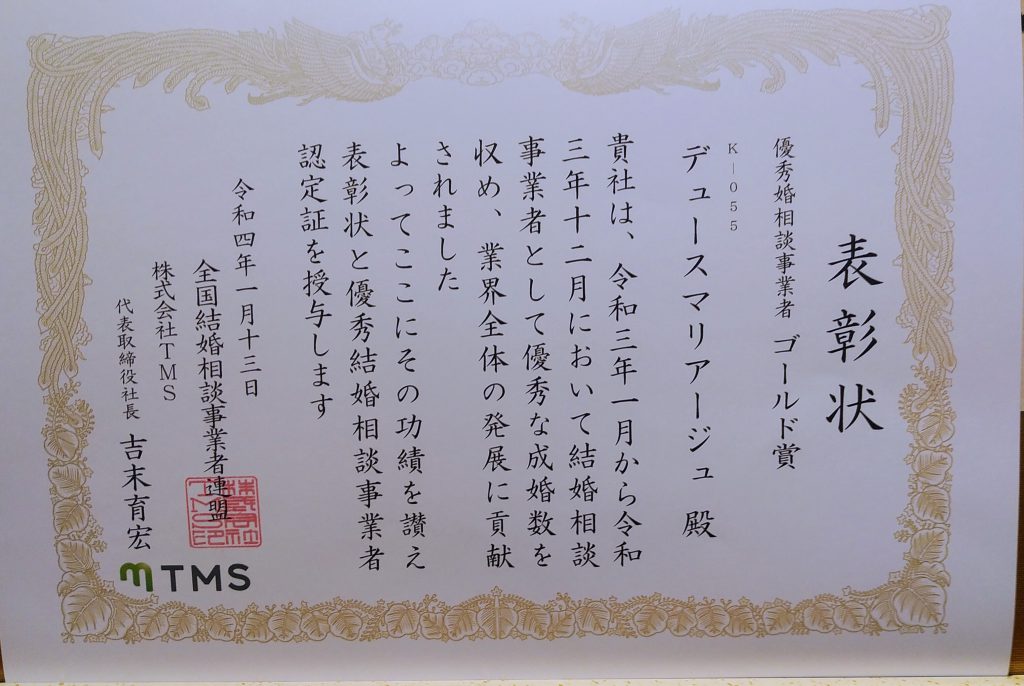 表彰状
優秀婚相談事業者 ゴールド賞
K－055
デュースマリアージュ 殿
貴社は、令和三年一月から令和
三年十二月において結婚相談
事業者として優秀な成婚数を
収め、業界全体の発展に貢献
されました
よってここにその功績を讃え
表彰状と優秀結婚相談事業者
認定証を授与します
令和四年一月十三日
全国結婚相談事業者連盟
株式会社TMS
代表取締役社長 吉末育宏
TMS